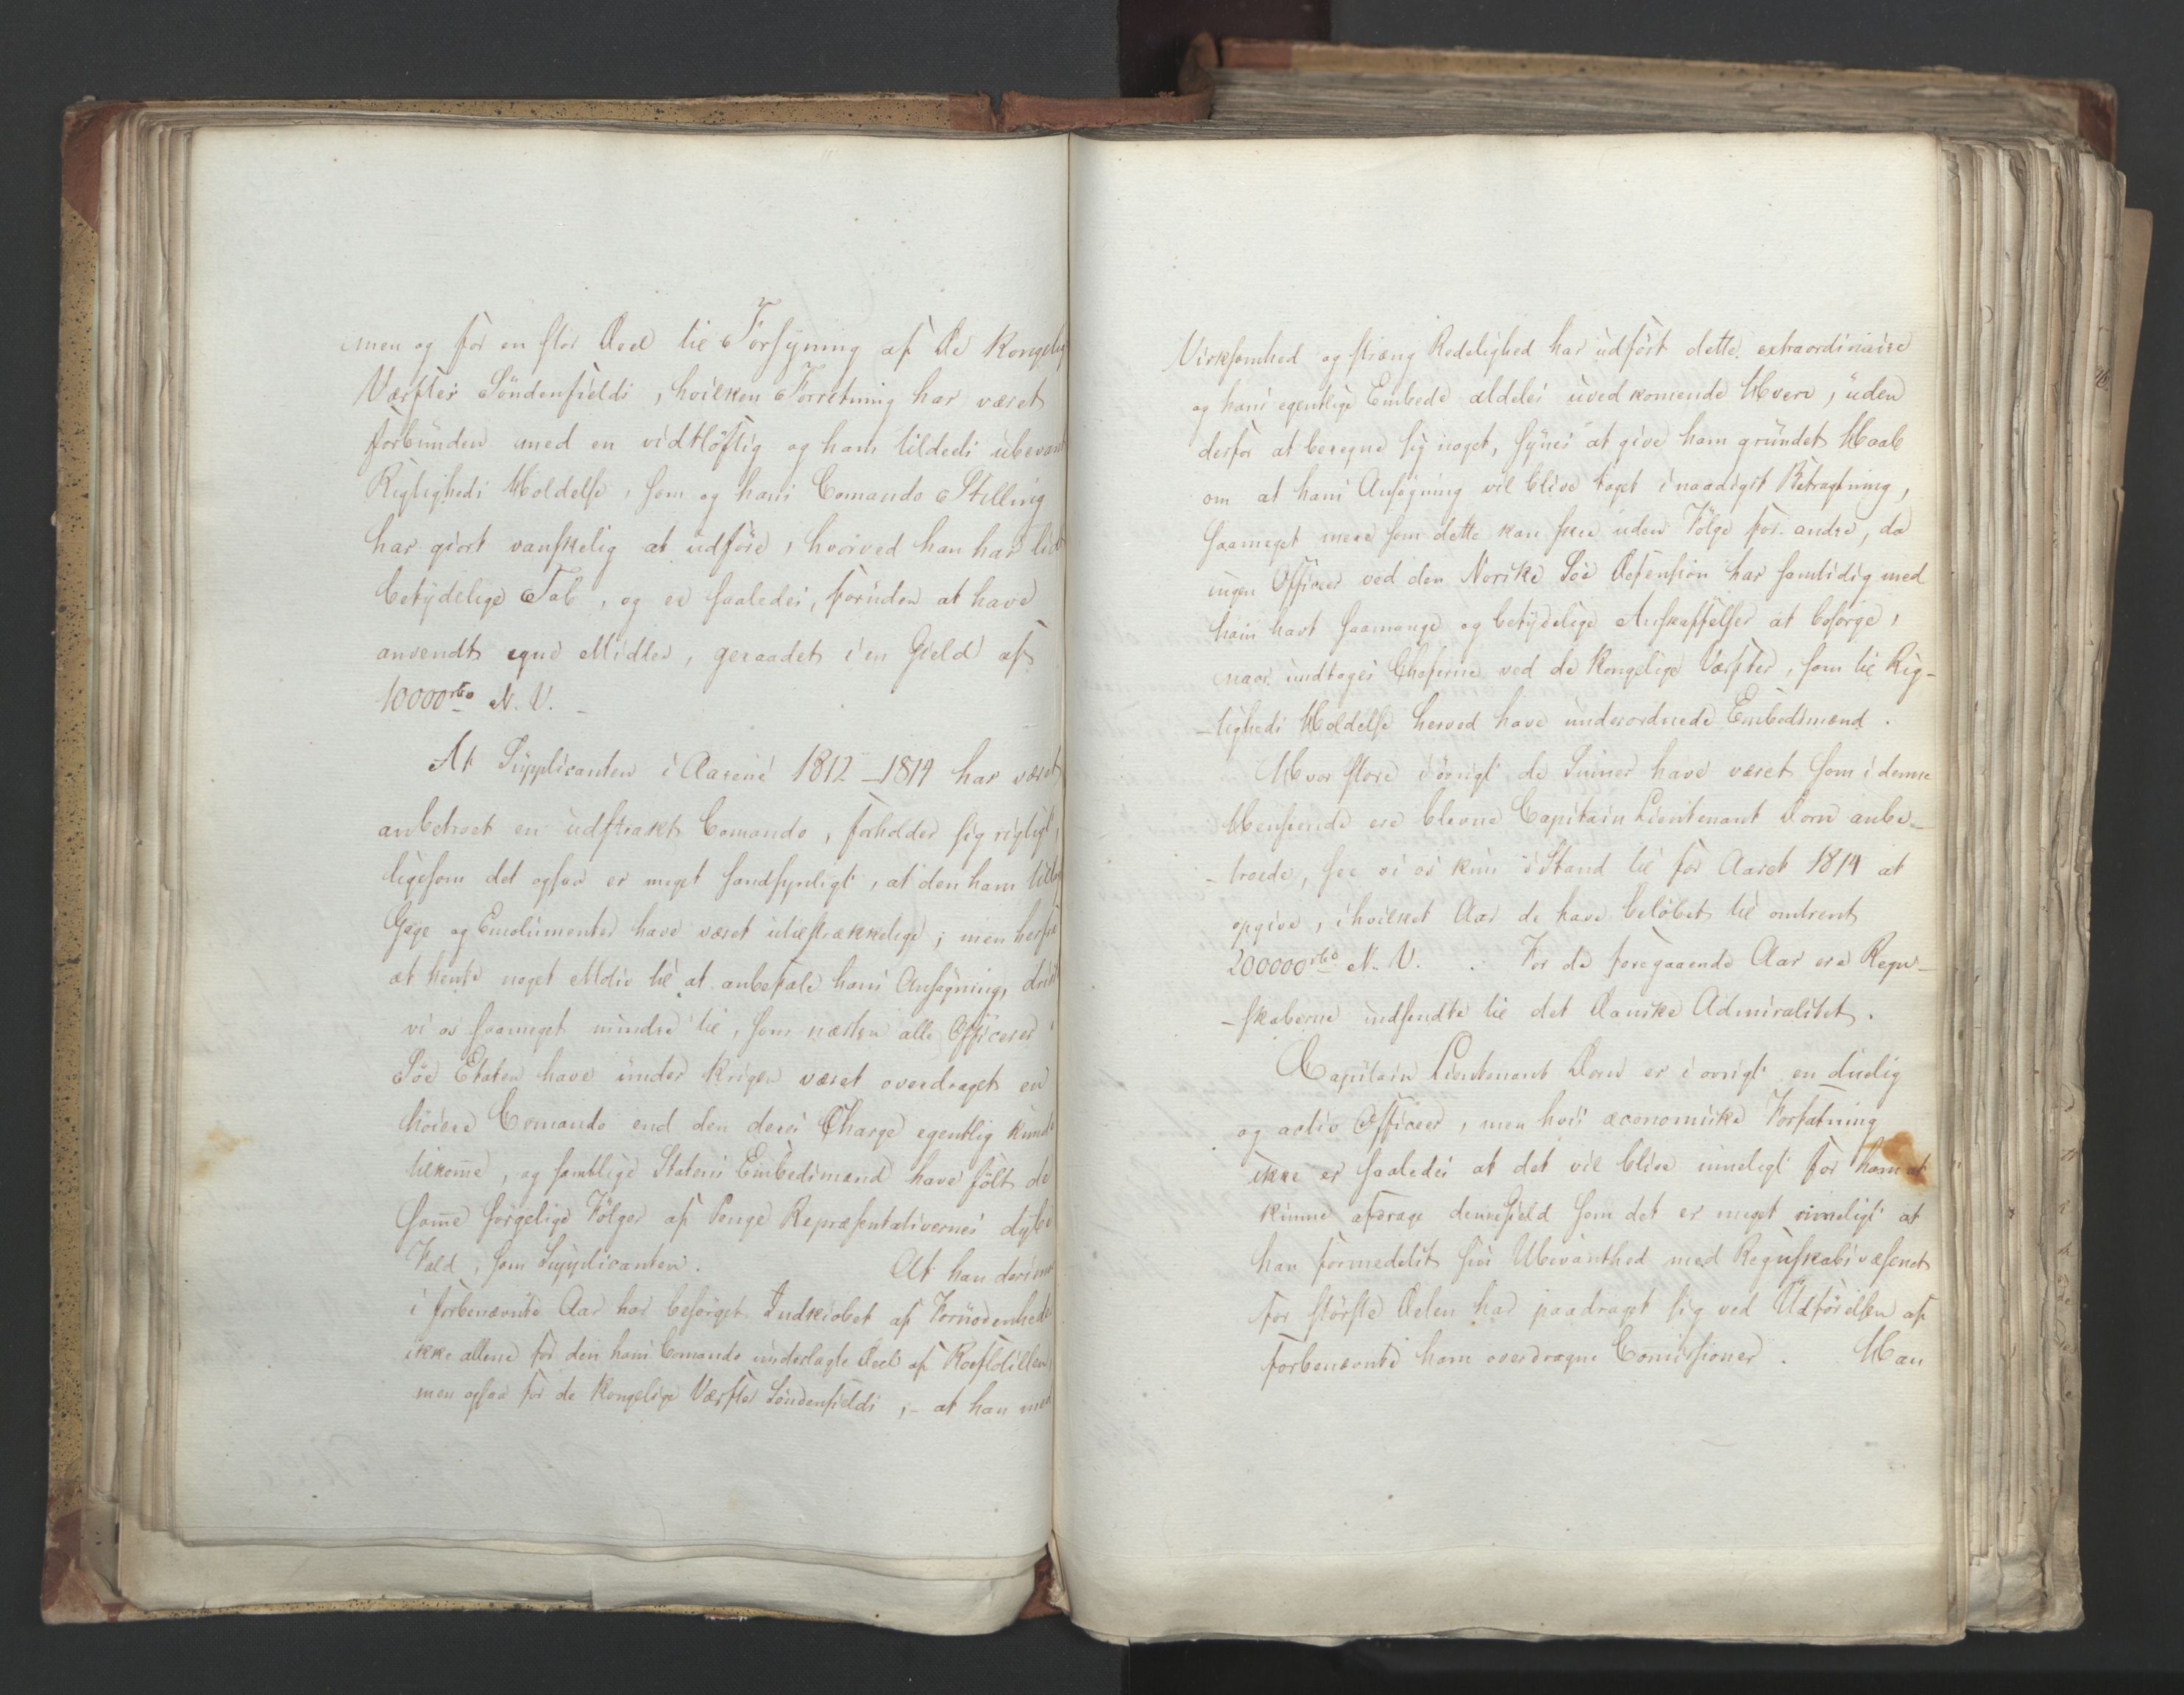 men og for en stor Deel til Forsyning af De Kongelig
Værfter Söndenfields, hvilken Forretning har været
forbunden med en vidtlöftig og ham tildeels ubevant
Rigtigheds Holdelse, som og hans Comando Stilling
har giort vanskelig at udföre, hvorved han har lidt
betydelige Tab, og er saaledes, foruden at have
anvendt egne Midler, geraadet i en Gield af
10000 rbd N. V. –
At Supplicanten i Aarene 1812 – 1814 har været
anbetroet en udstrakt Comando, forholder sig rigtigt,
ligesom det ogsaa er meget sandsynligt, at den ham
Gage og Emolumenter have været utilstrækkelige; men herfra
at hente noget Motiv til at anbefale hans Ansøgning,
vi os saameget mindre til, som næsten alle Officerer i
Söe Etaten have under Krigen været overdraget en
höiere Comando end den deres Charge egentlig kunde
tilkom̄e, og samtlige Statens Embedsmænd have fölt de
sam̄e sörgelige Fölger af Penge Repræsentativernes dybe
Fald, som Supplicanten. At han derimod
i forbenævnte Aar har besörget Indkiöbet af Fornödenheder
ikke allene for den hans Comando underlagte Deel af Roeflotillen,
men ogsaa for de Kongelige Værfter Söndenfields, – at han med
Virksomhed og stræng Redelighed har udfört dette extraordinaire
og hans egentlige Embede aldeles uvedkomende Hverv, uden
derfor at beregne sig noget, synes at give ham grundet Haab
om at hans Ansøgning vil blive taget i naadigst Betragtning,
saameget mere som dette kan skee uden Fölge for andre, da
ingen Officeer ved den Norske Söe Defension har samtidig med
ham havt saamange og betydelige Anskaffelser at besörge,
naar undtages Cheferne ved de Kongelige Værfter, som til Rig-
-tigheds Holdelse herved have underordnede Embedsmænd.
Hvor store i övrigt de Sum̄er have været som i denne
Henseende ere blevne Capitain Lieutenant Dorn anbe-
-troede, see vi os kun i Stand til for Aaret 1814 at
opgive, i hvilket Aar de have belöbet til omtrent
200000 rbd N. V. . For de foregaaende Aar ere Regn-
-skaberne indsendte til det Danske Admiralitet.
Capitain Lieutenant Dorn er i övrigt en duelig
og activ Officeer, men hvis œconomiske Forfatning
ikke er saaledes at det vil blive mueligt for ham at
kunne afdrage denne Gield som det er meget rimeligt at
han formedelst sin Ubevanthed med Regnskabsvæsenet
for störste Delen har paadraget sig ved Udförelsen af
forbenævnte ham overdragne Com̄issioner. Han